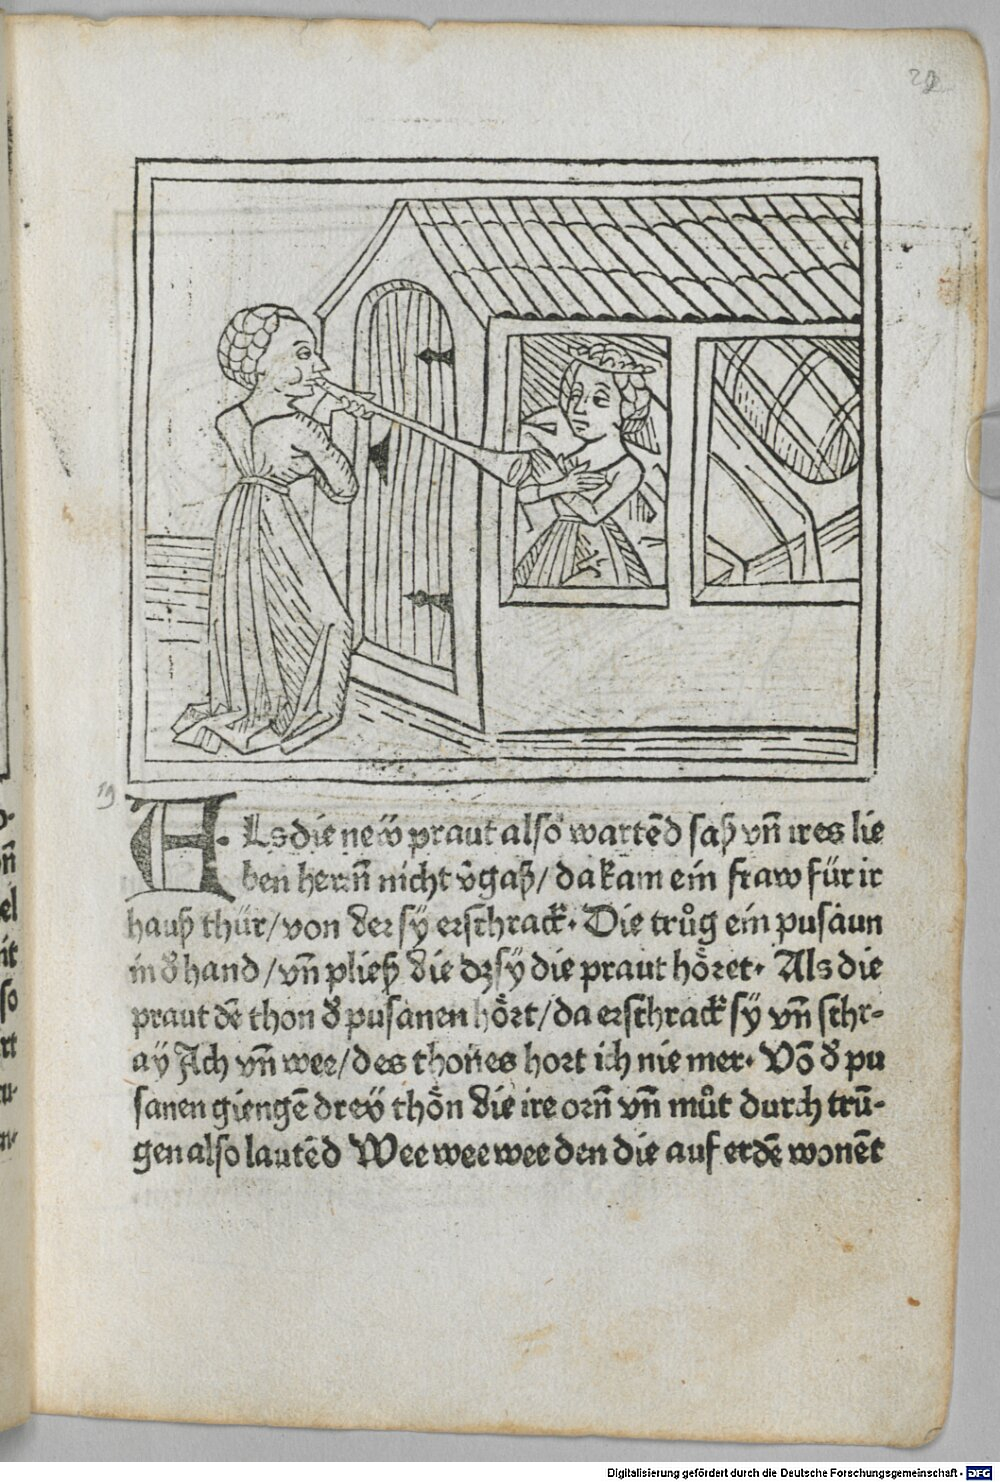 22
19
Als die neẅ praut also wartēd saß vñ ires lie
ben herrñ nicht v̄gaß/ da kam ein fraw für ir
hauß thür/ von der sÿ erschrack. Die trůg ein pusaun
in d̕ hand/ vñ pließ die dz sÿ die praut höret. Als die
praut dē thon d̕ pusanen hört/ da erschrack sÿ vñ schr-
aÿ Ach vñ wee/ des thones hort ich nie mer. Vō d̕ pu
sanen giengē dreÿ thön die ire orñ vñ můt durch trū-
gen also lautēd Wee wee wee den die auf erdē wonēt
Digitalisierung gefördert durch die Deutsche Forschungsgemeinschaft - DFG